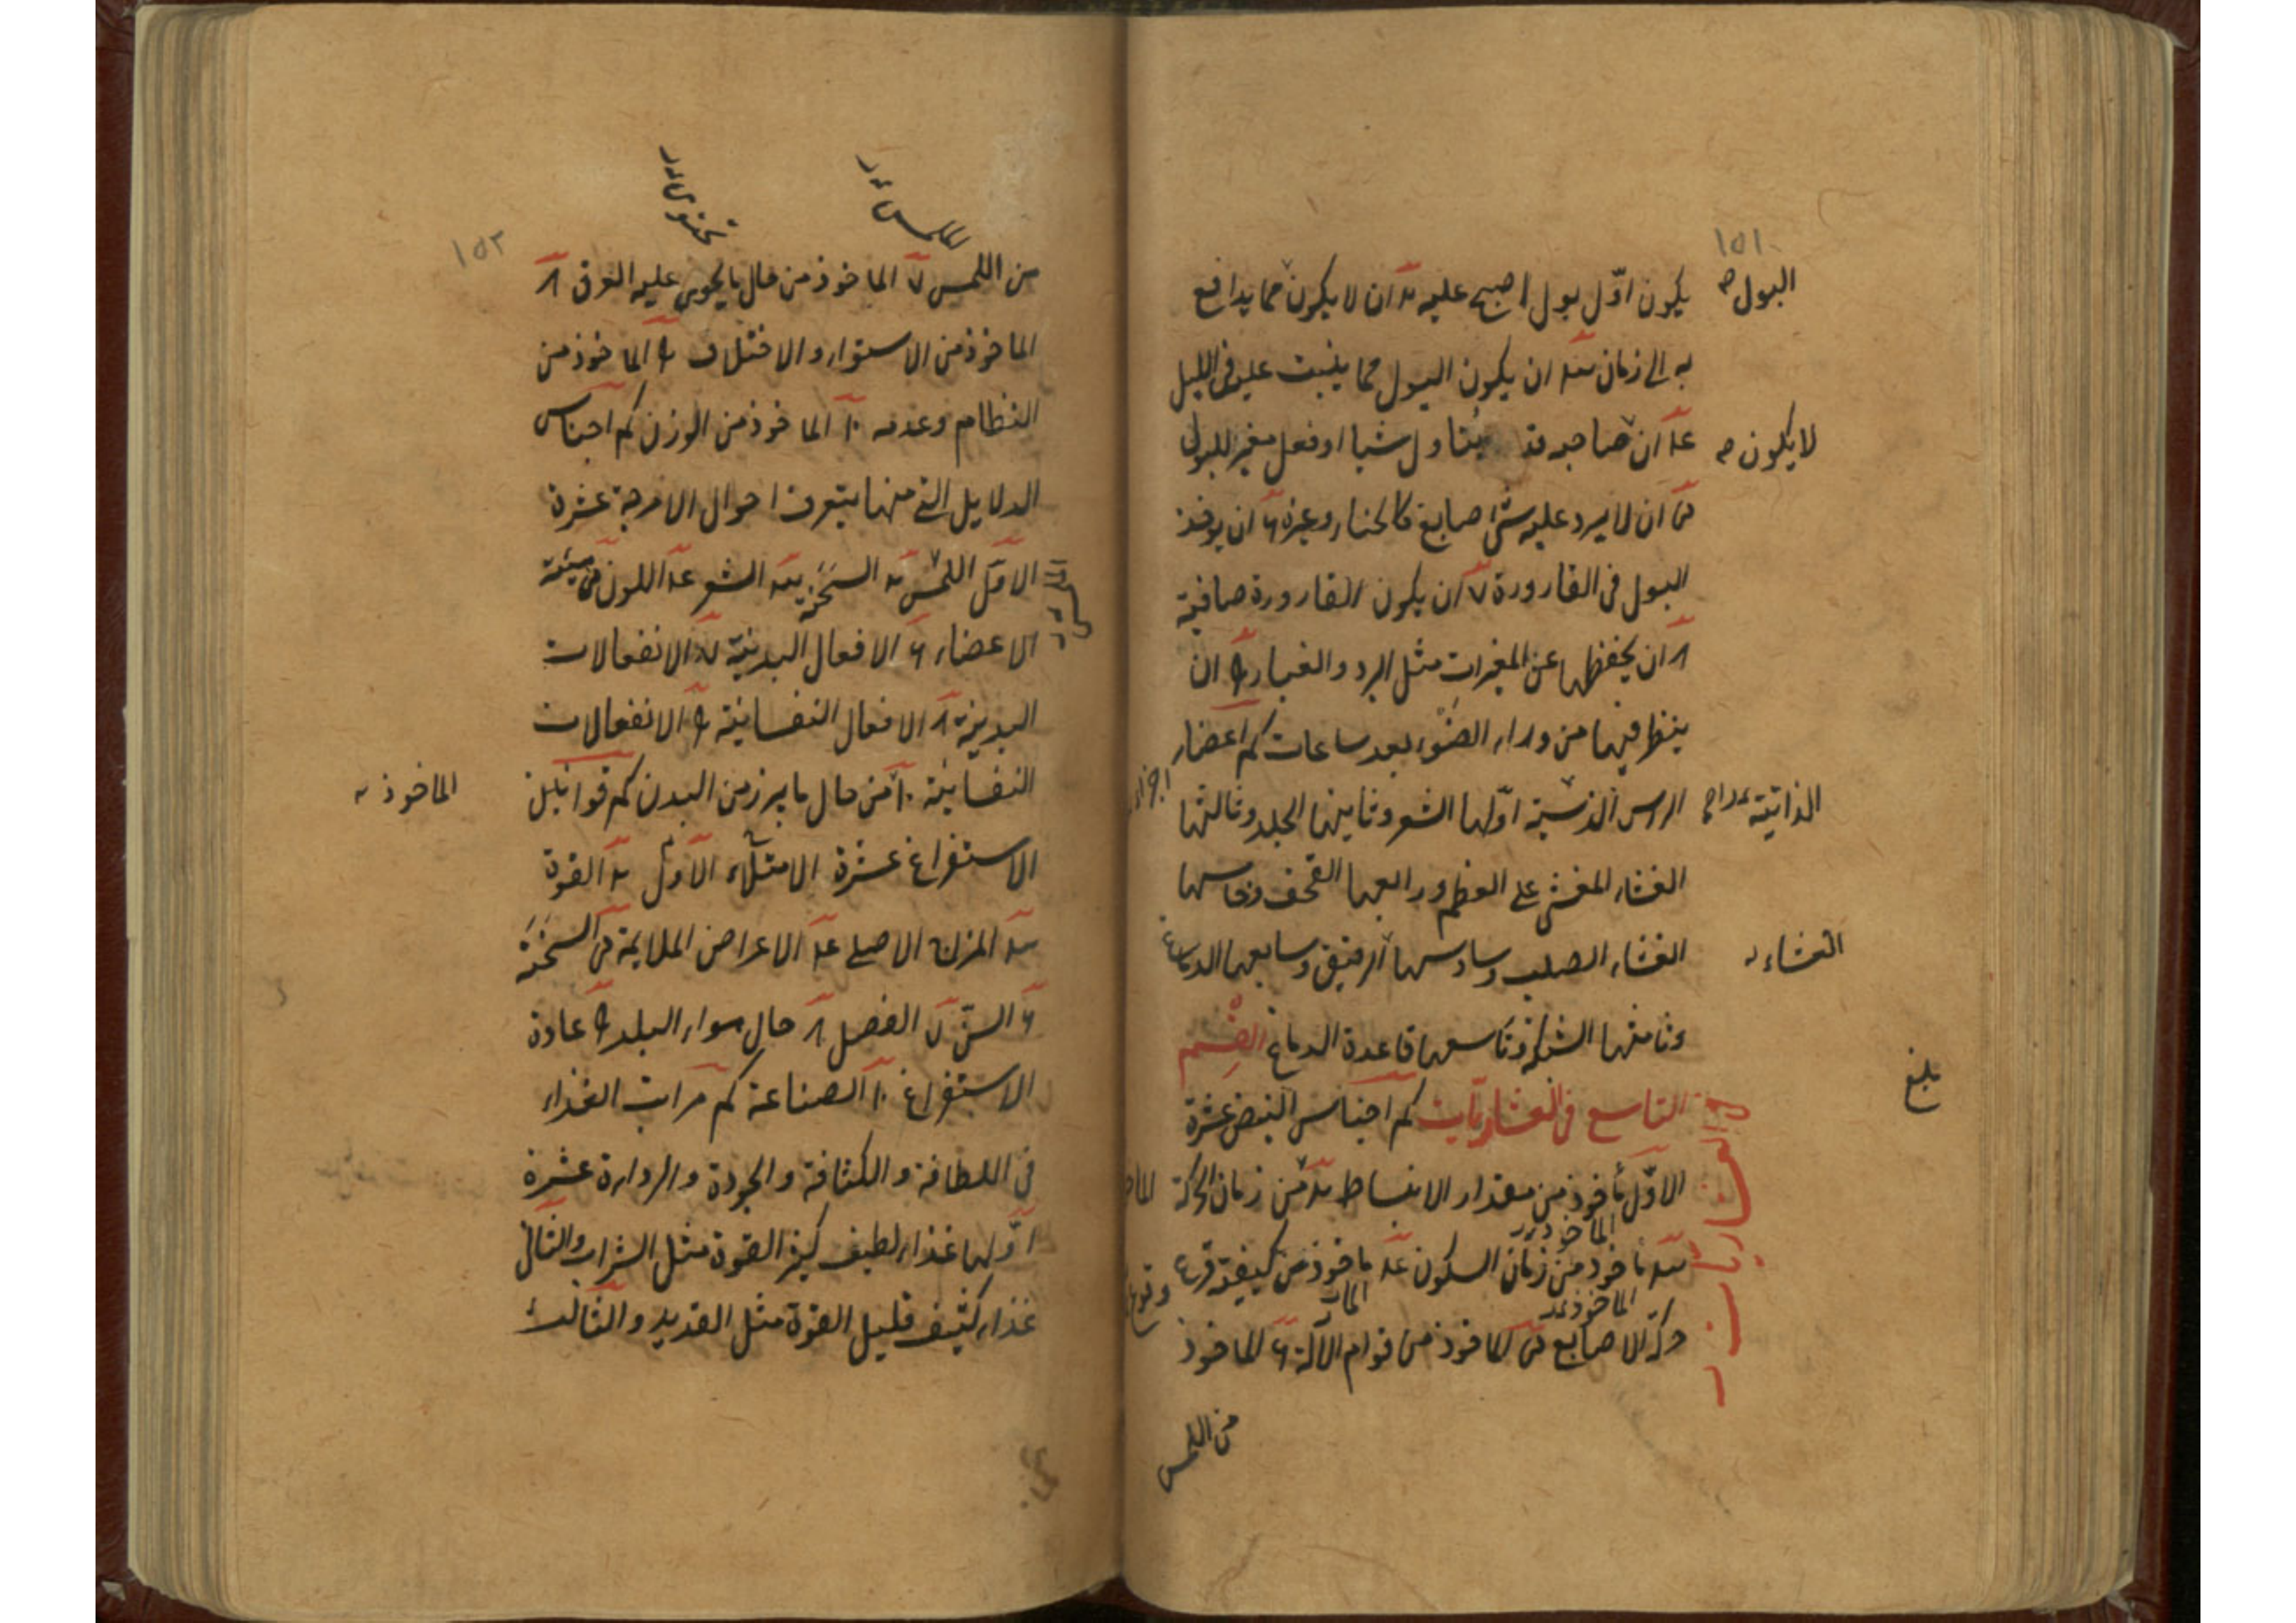 ١٥١
يكون اوّل بول اصبح عليه ب ان لا يكون مما يدافع
البول صح
به الى زمان ج ان يكون البول مما يثبت عليه فى الليل
د ان صاحبه قد يتناول شيا او فعل مغير للبول
لا يكون صح
ه ان لا يرد عليه شئ صابغ كالحناء وغيره و ان يوخذ
البول فى القارورة ٧ ان يكون القارورة صافية
٨ ان يحفظها عن المغيرات مثل البرد والغبار ٩ ان
ينظر فيها من وراء الضوء بعد ساعات كم اعضاء
اجزاء
الراس الذاتية اوّلها الشعر وثانيها الجلد وثالثها
الذاتية
الغشاء المغشى على العظم ورابعها القحف وخامسها
الغشاء الصلب وسادسها الرقيق وسابعها الدماغ
الغشاء
وثامنها الشبكة وتاسعها قاعدة الدماغ القسم
التاسع فى العشاريّات كم اجناس النبض عشرة
بلغ
العشاريات
الاوّل مأخوذ من مقدار الانبساط ب من زمان الحركة
الماخوذ
ج مأخوذ من زمان السكون د ماخوذ من كيفية قرع
الماخوذ
حركة الاصابع ه الماخوذ من قوام الآلة و الماخوذ
من اللمس
١٥٢
من اللمس ٧ الماخوذ من حال ما يحوى عليه العرق ٨
الماخوذ من الاستواء والاختلاف ٩ الماخوذ من
النظام وعدمه ١٠ الماخوذ من الوزن كم اجناس
الدلايل التى منها يتعرف احوال الامزجة عشرة
الاوّل اللمس ب السحنة ج الشعر د اللون ه هيئة
الاعضاء و الافعال البدنية ٧ الانفعالات
البدنية ٨ الافعال النفسانية ٩ الانفعالات
النفسانية ١٠ من حال ما يبرز من البدن كم قوانين
الماخوذ
الاستفراغ عشرة الامتلاء الاوّل ب القوة
ج المزاج الاصلى د الاعراض الملايمة ه السحنة
و السنّ ٧ الفصل ٨ حال هواء البلد ٩ عادة
الاستفراغ ١٠ الصناعة كم مراتب الغذاء
فى اللطافة والكثافة والجودة والرداءة عشرة
اوّلها غذاء لطيف كثير القوة مثل الشراب والثانى
غذاء كثيف قليل القوة مثل القديد والثالث